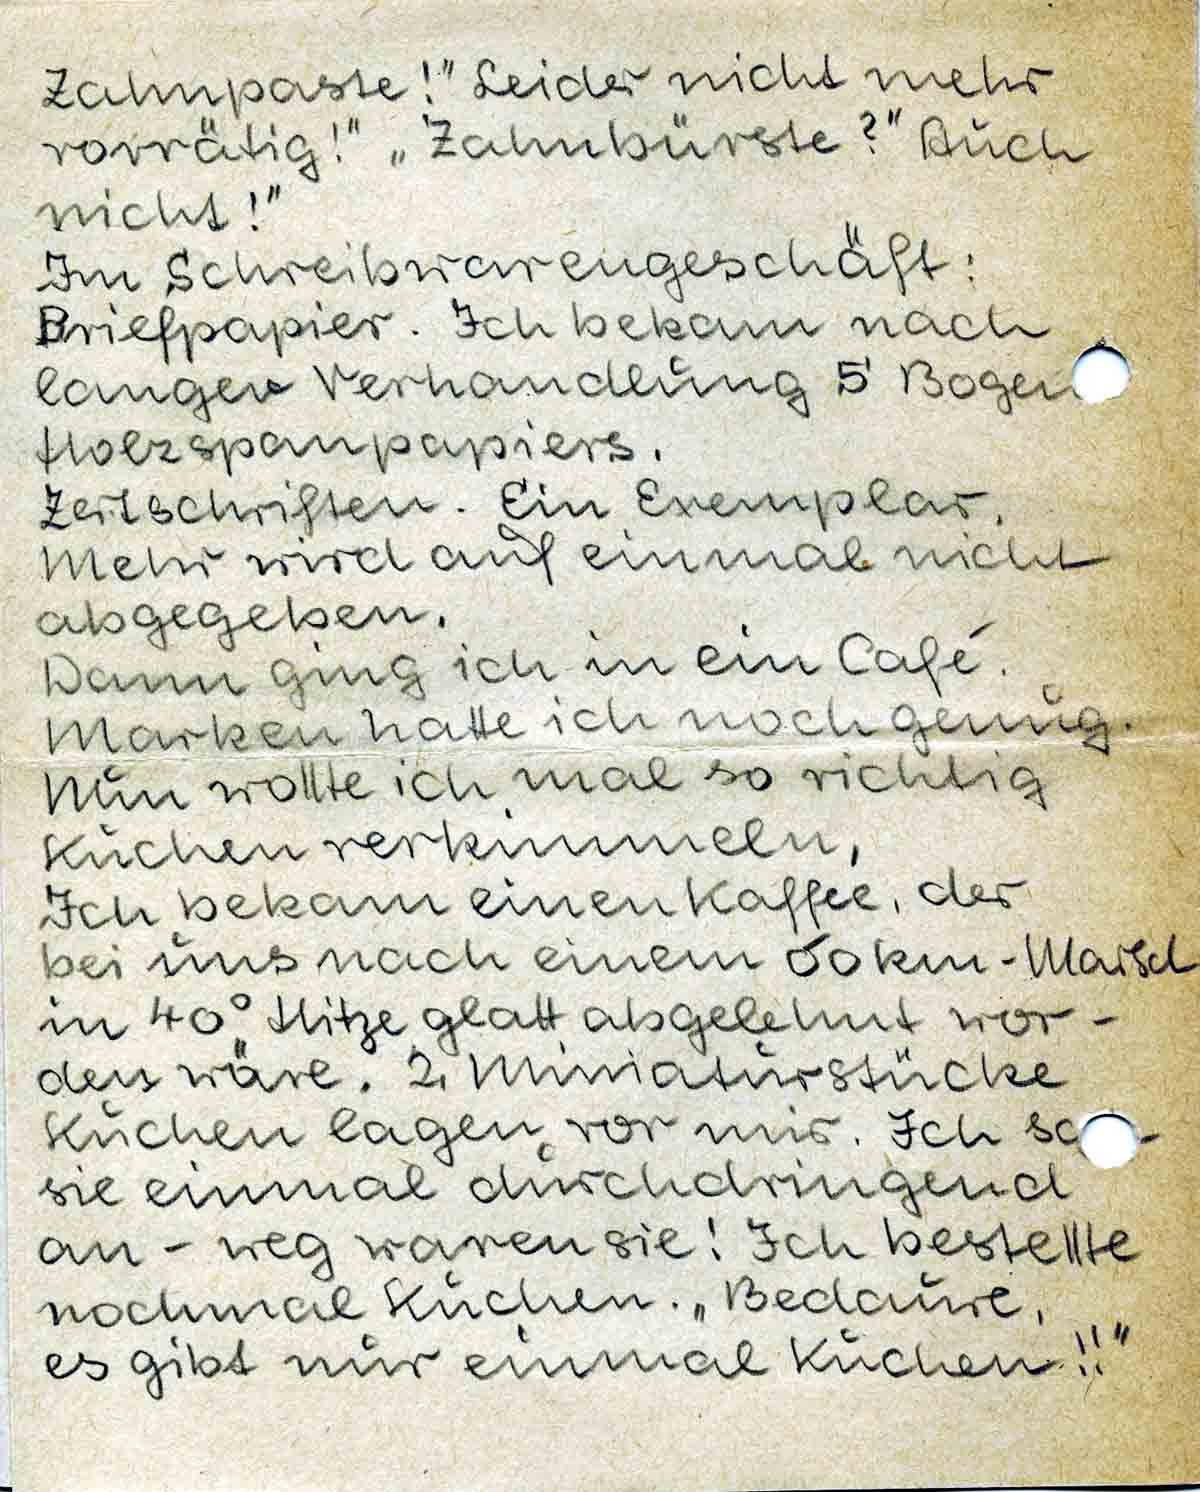 Zahnpaste!" Leider nicht mehr
vorrätig!" „Zahnbürste?" Auch
nicht!"
Im Schreibwarengeschäft:
Briefpapier. Ich bekam nach
langer Verhandlung 5 Bogen
Holzspanpapiers.
Zeitschriften. Ein Exemplar.
Mehr wird auf einmal nicht
abgegeben.
Dann ging ich in ein Café.
Marken hatte ich noch genug.
Nun wollte ich mal so richtig
Kuchen verkimmeln.
Ich bekam einen Kaffee, der
bei uns nach einem 60km-Marsch
in 40° Hitze glatt abgelehnt wor-
den wäre. 2 Miniaturstücke
Kuchen lagen vor mir. Ich
sie einmal durchdringend
an – weg waren sie! Ich bestellte
nochmal Kuchen. „Bedaure,
es gibt nur einmal Kuchen!!"